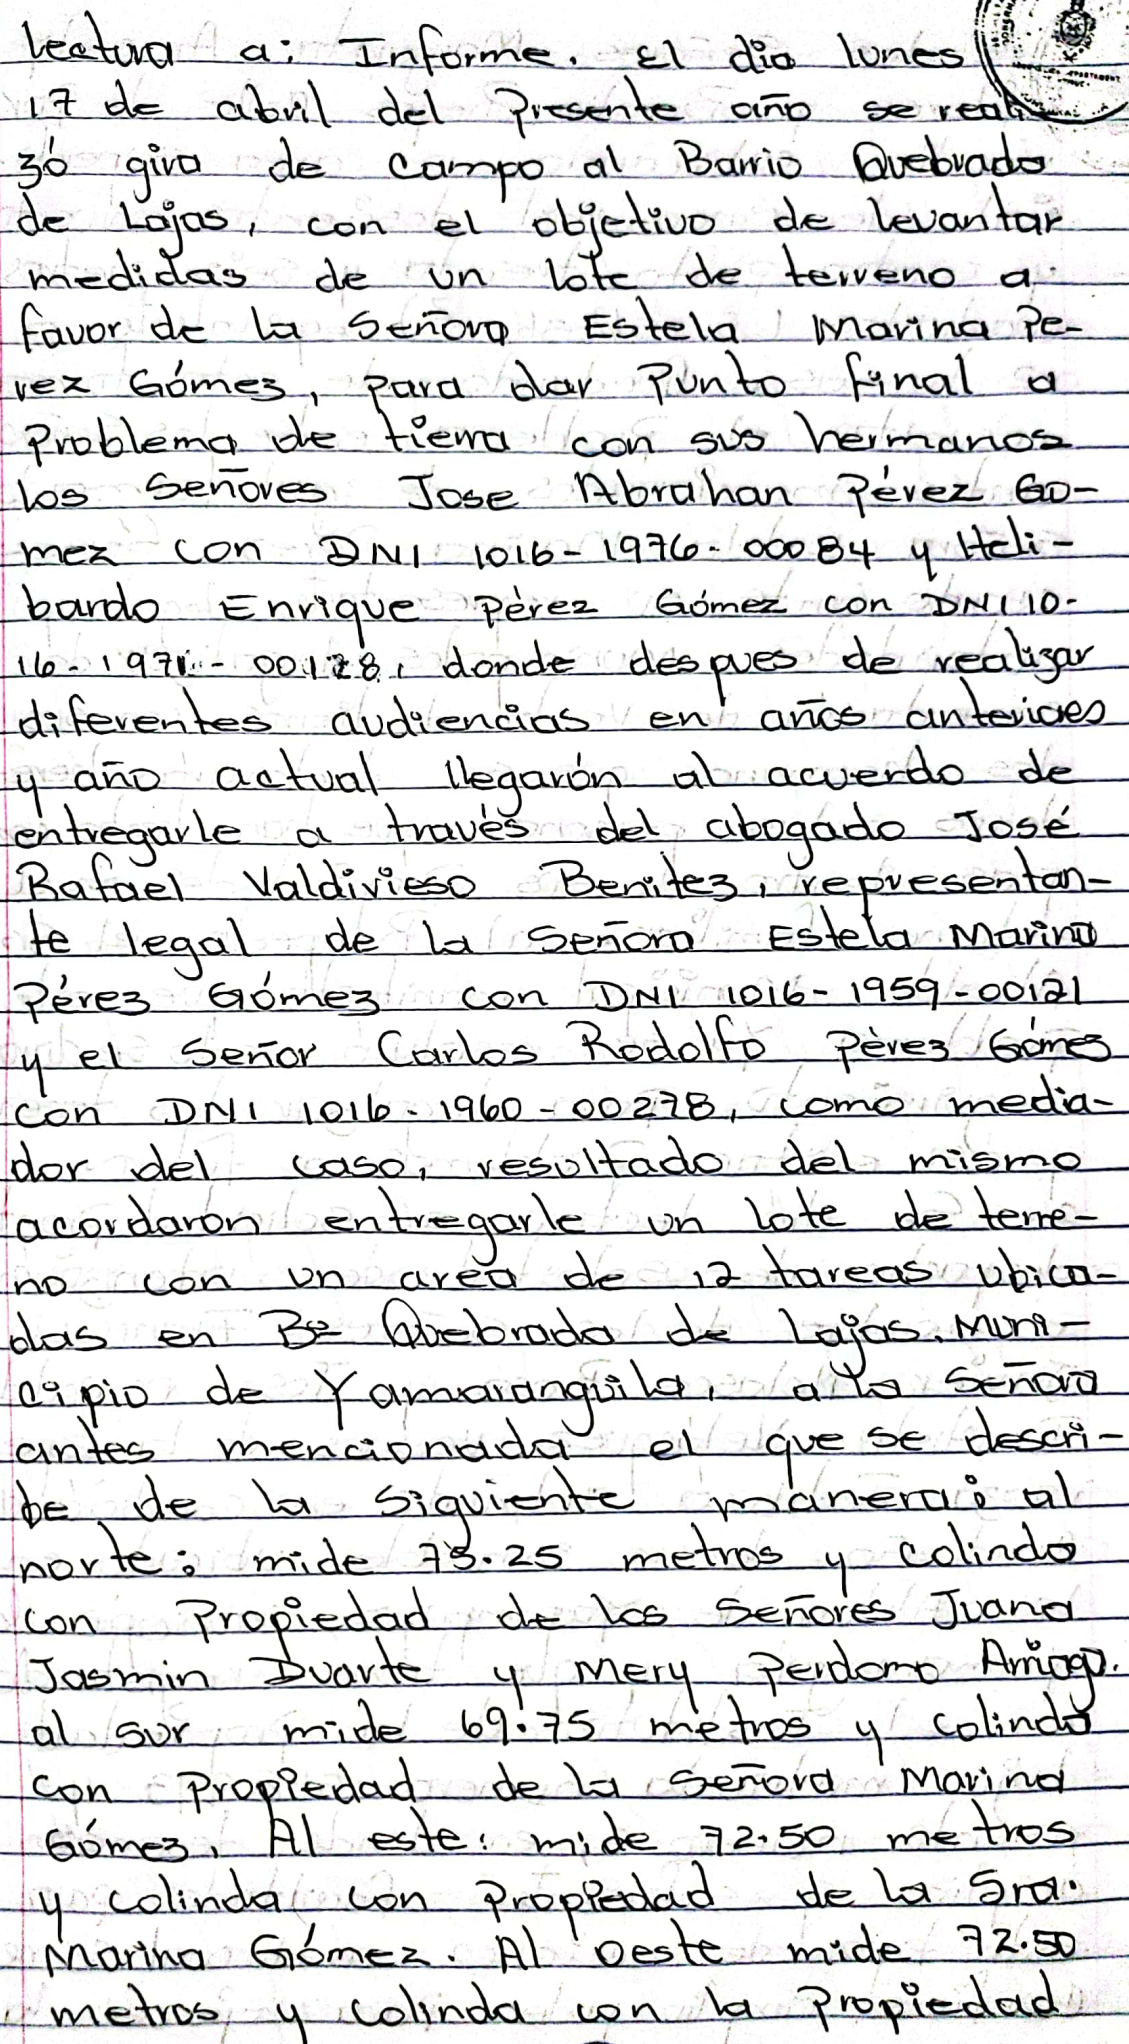 lectura a: Informe. El dia lunes
17 de abril del Presente año se reali
zó gira de campo al Barrio Quebrada
de Lajas, con el objetivo de levantar
medidas de un lote de terreno a
favor de la Señora Estela Marina Pe-
rez Gómez, para dar Punto final a
Problema de tierra con sus hermanos
los Señores Jose Abrahan Pérez Go-
mez con DNI 1016-1976-00084 y Heli-
bardo Enrique Pérez Gómez con DNI 10-
16-1971-00128, donde despues de realizar
diferentes audiencias en años anteriores
y año actual llegarón al acuerdo de
entregarle a través del abogado José
Rafael Valdivieso Benitez, representan-
te legal de la Señora Estela Marina
Pérez Gómez con DNI 1016-1959-00121
y el Señor Carlos Rodolfo Pérez Gómes
con DNI 1016-1960-00278, como media-
dor del caso, resultado del mismo
acordaron entregarle un lote de terre-
no con un area de 12 tareas ubica-
das en Bo Quebrada de Lajas. Muni-
cipio de Yamaranguila, a la Señora
antes mencionada el que se descri-
be de la Siguiente manera: al
norte: mide 73.25 metros y colinda
con Propiedad de los Señores Juana
Jasmin Duarte y Mery Perdomo
al sur mide 69.75 metros y colinda
con Propiedad de la Señora Marina
Gómez. Al este: mide 72.50 metros
y colinda con Propiedad de la Sra.
Marina Gómez. Al oeste mide 72.50
metros y colinda con la Propiedad